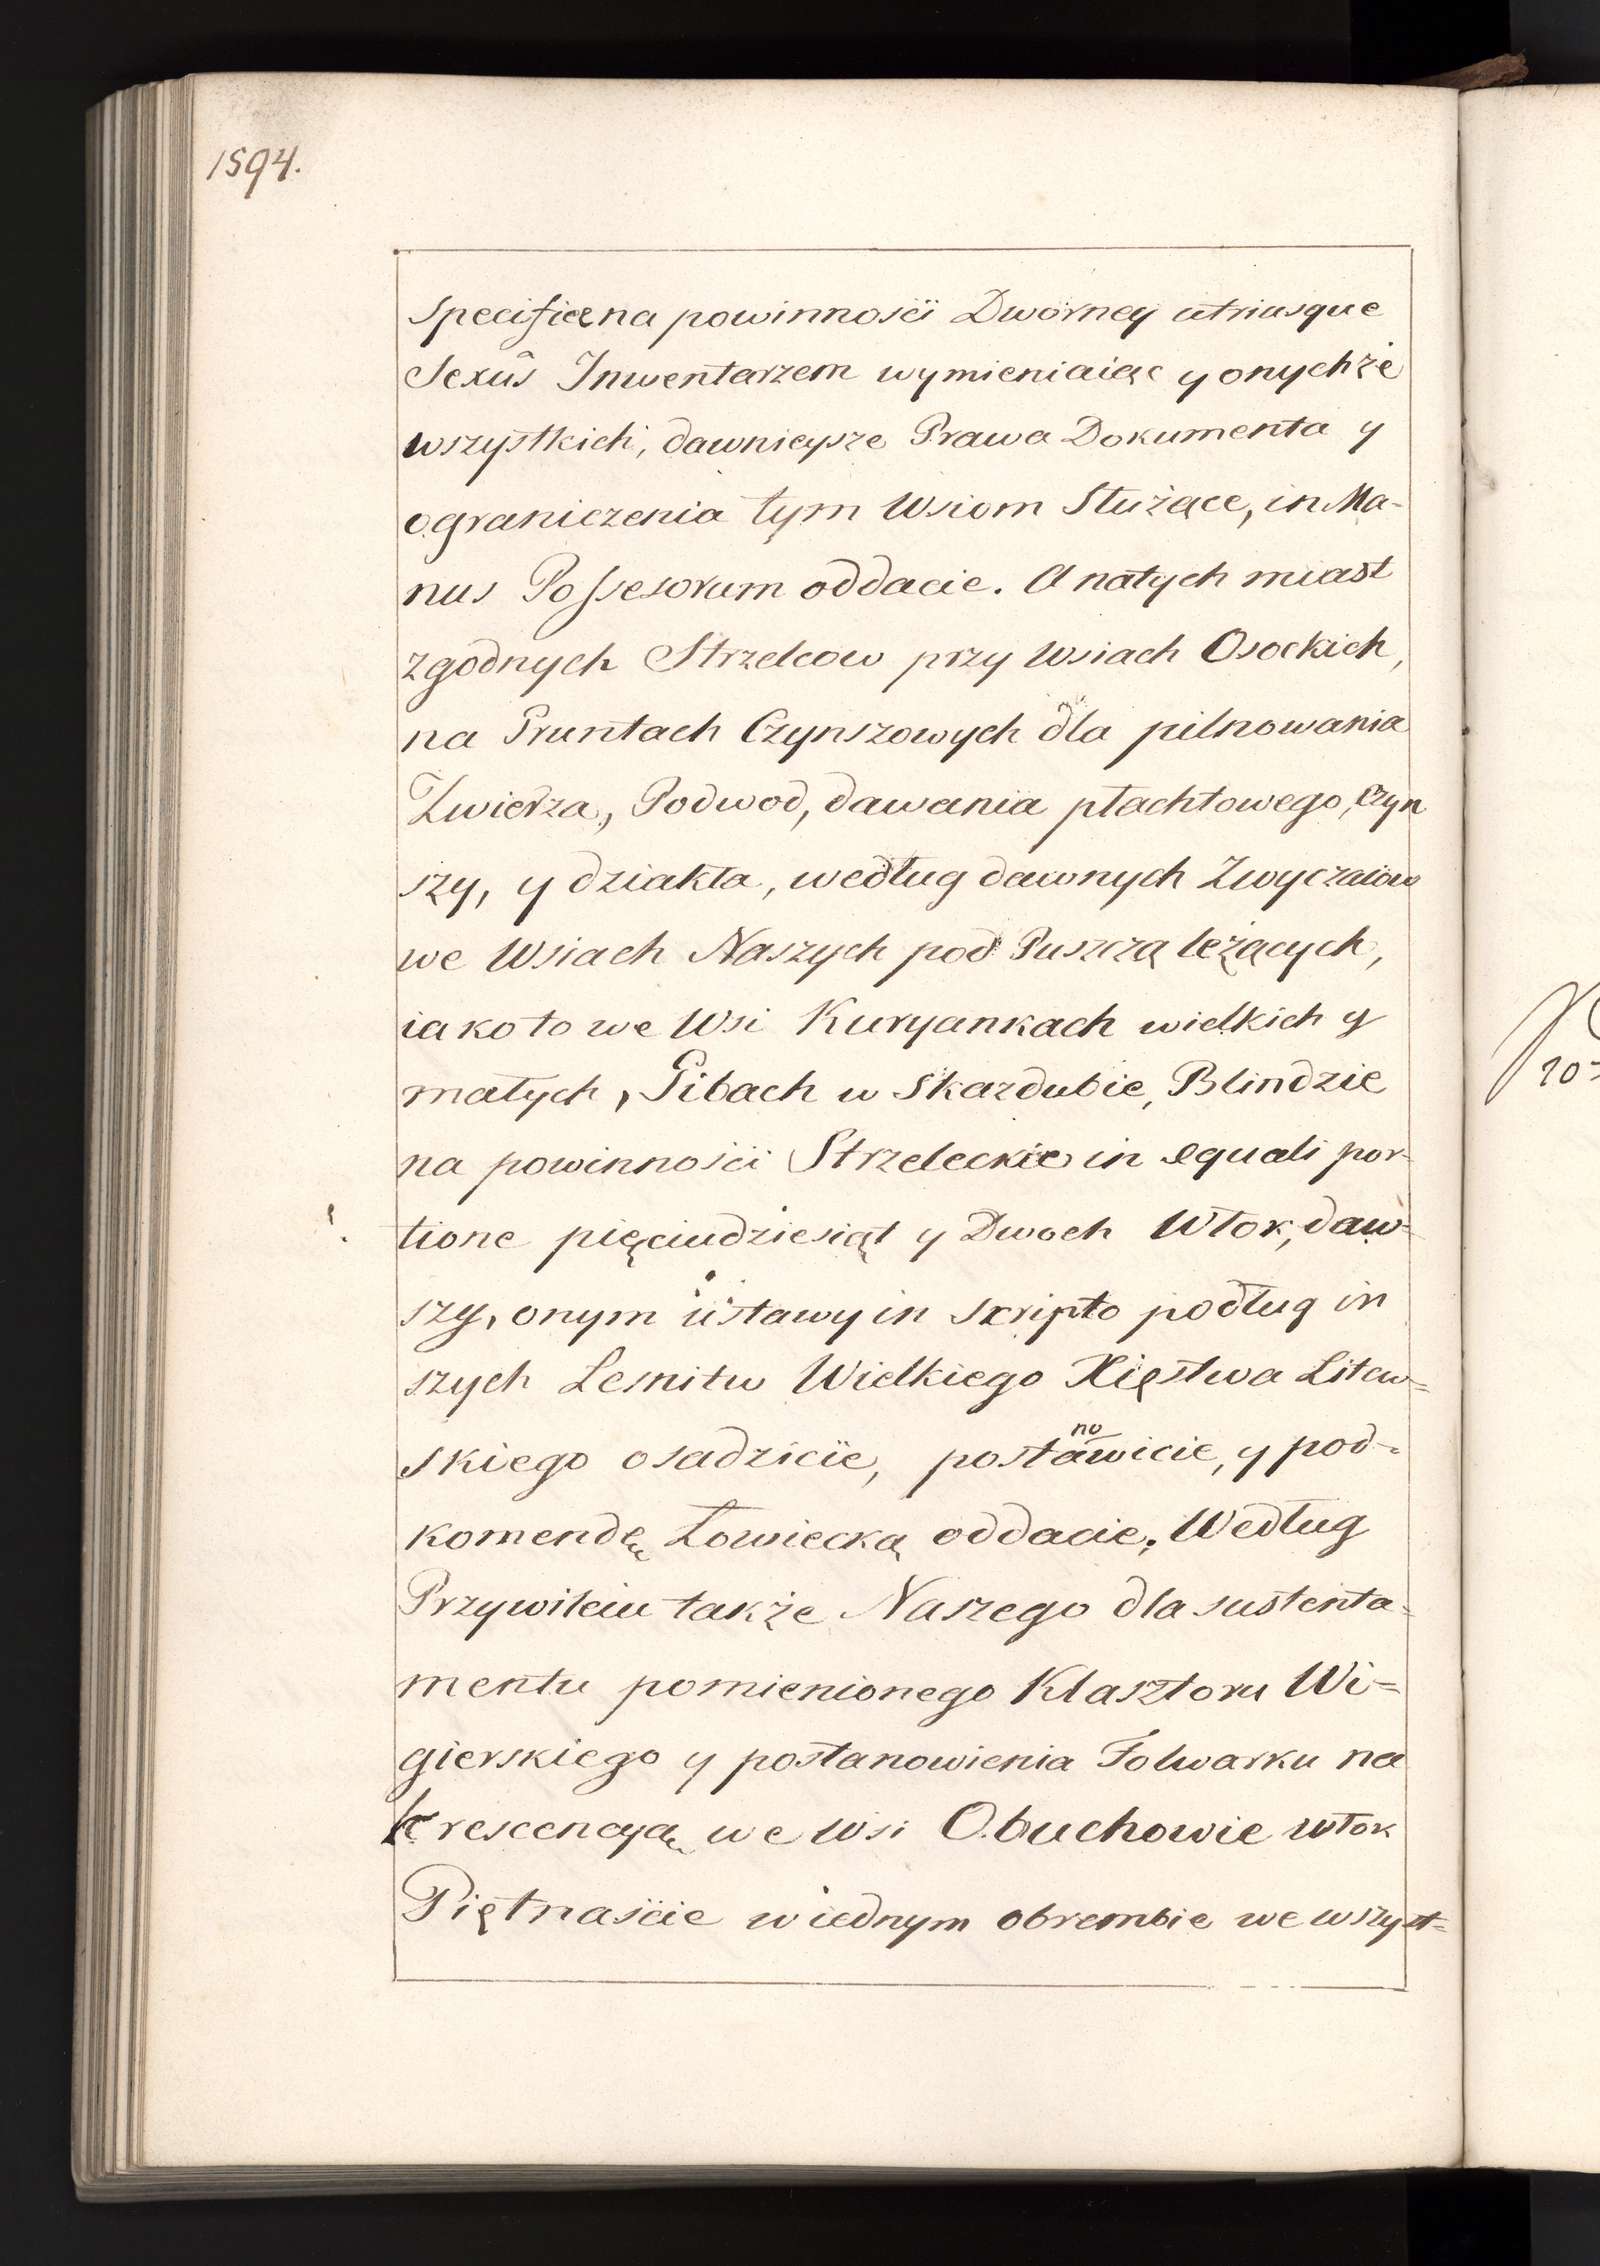 1594.
specificæ na powinnosći Dworney utriusque
Sexûs Inwentarzem wymieniaiąc y onychże
wszystkich, dawnieysze Prawa Dokumenta y
ograniczenia tym Wsiom Służące, in Ma-
nus Possesorum oddacie. A natych miast
zgodnych Strzelcow przy Wsiach Osockich,
na Gruntach Czynszowych dla pilnowania
Zwierza, Podwod, dawania płachtowego, Czyn
szy, y dziakła, według dawnych Zwyczaiow
we Wsiach Naszych pod Puszczą leżących,
iako to we Wsi Kuryankach wielkich y
małych, Gibach w Skazdubie, Blindzie
na powinnosći Strzeleckie in equali por-
tione pięciudziesiąt y Dwoch Włok, daw-
szy, onym ustawy in scripto podług in
szych Lesnitw Wielkiego Xięstwa Litew=
skiego osadzićie, postanowicie, y pod-
komendę Łowiecką oddacie. Według
Przywileiu także Naszego dla sustenta-
mentu pomienionego Klasztoru Wi=
gierskiego y postanowienia Folwarku na
krescencyą we Wsi Obuchowie włok
Piętnaśćie w iednym obrembie we wszyst=